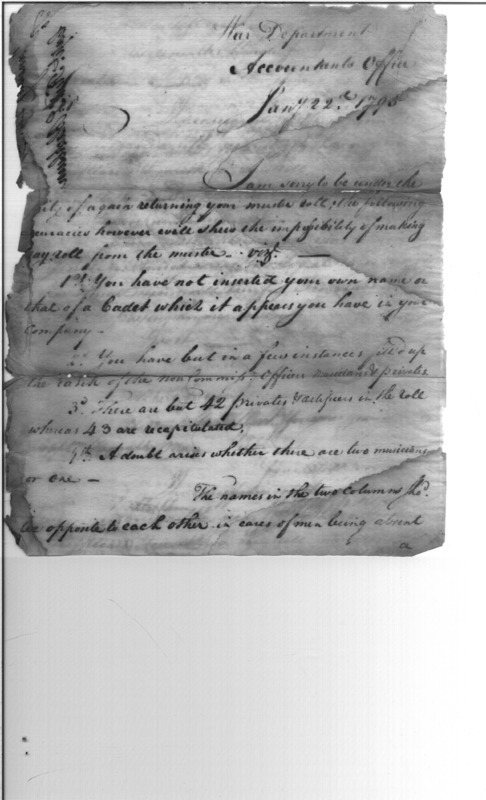 War Department
Accountants Office
Jany 22d. 1795
I am sorry to be under the
of again returning your muster roll, the following
however will shew the impossibility of making
roll from the muster - vizt. —
1st. You have not inserted your own name or
that of a Cadet which it appears you have in your
Company -
2d. You have but in a few instances up
the rank of the non Commissd. Officers musicians & privates
3d. There are but 42 privates & artificers in the roll
whereas 43 are recapitulated,
4th. A doubt arises whether there are two musicians
or one —
The names in the two columns shd.
be opposite to each other in cases of men being absent
a